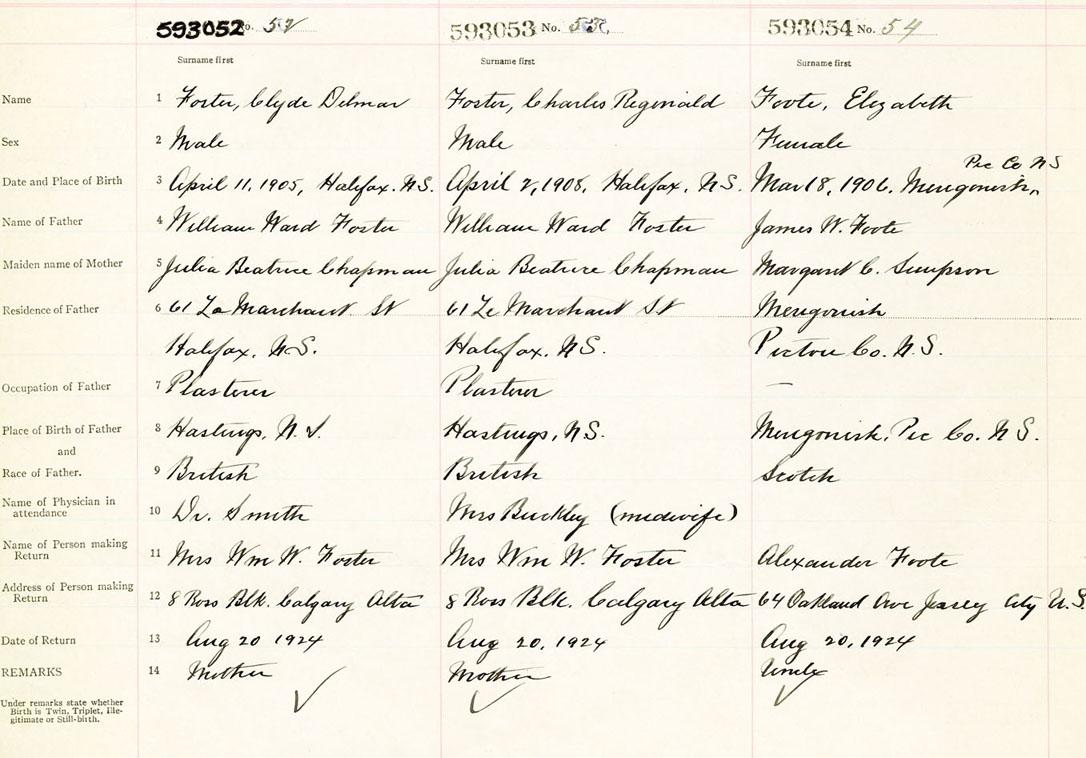 593052 No. 52 593053 No. 53 593054 No. 54
Surname first Surname first Surname first
Name 1 Foster, Clyde Delmar Foster, Charles Reginald Foote, Elizabeth
Sex 2 Male Male Female
Pic Co NS
Date and Place of Birth 3 April 11, 1905, Halifax. N.S. April 2, 1908, Halifax, N.S. Mar 18, 1906. Merigonish,
Name of Father 4 William Ward Foster William Ward Foster James W. Foote
Maiden name of Mother 5 Julia Beatrice Chapman Julia Beatrice Chapman Margaret C. Simpson
Residence of Father 6 61 La Marchant St 61 Le Marchant St Merigonish
Halifax, N.S. Halifax, N.S. Pictou Co. N.S.
Occupation of Father 7 Plasterer Plasterer —
Place of Birth of Father 8 Hastings, N.S. Hastings, N.S. Merigonish, Pic Co. N.S.
and
Race of Father. 9 British British Scotch
Name of Physician in
attendance 10 Dr. Smith Mrs Buckley (midwife)
Name of Person making
Return 11 Mrs Wm W. Foster Mrs Wm W. Foster Alexander Foote
Address of Person making
Return 12 8 Ross Blk. Calgary Alta 8 Ross Blk. Calgary Alta 64 Oakland Ave Jersey City U.S.
Date of Return 13 Aug 20 1924 Aug 20, 1924 Aug 20, 1924
REMARKS 14 Mother Mother Uncle
Under remarks state whether
Birth is Twin, Triplet, Ille-
gitimate or Still-birth.